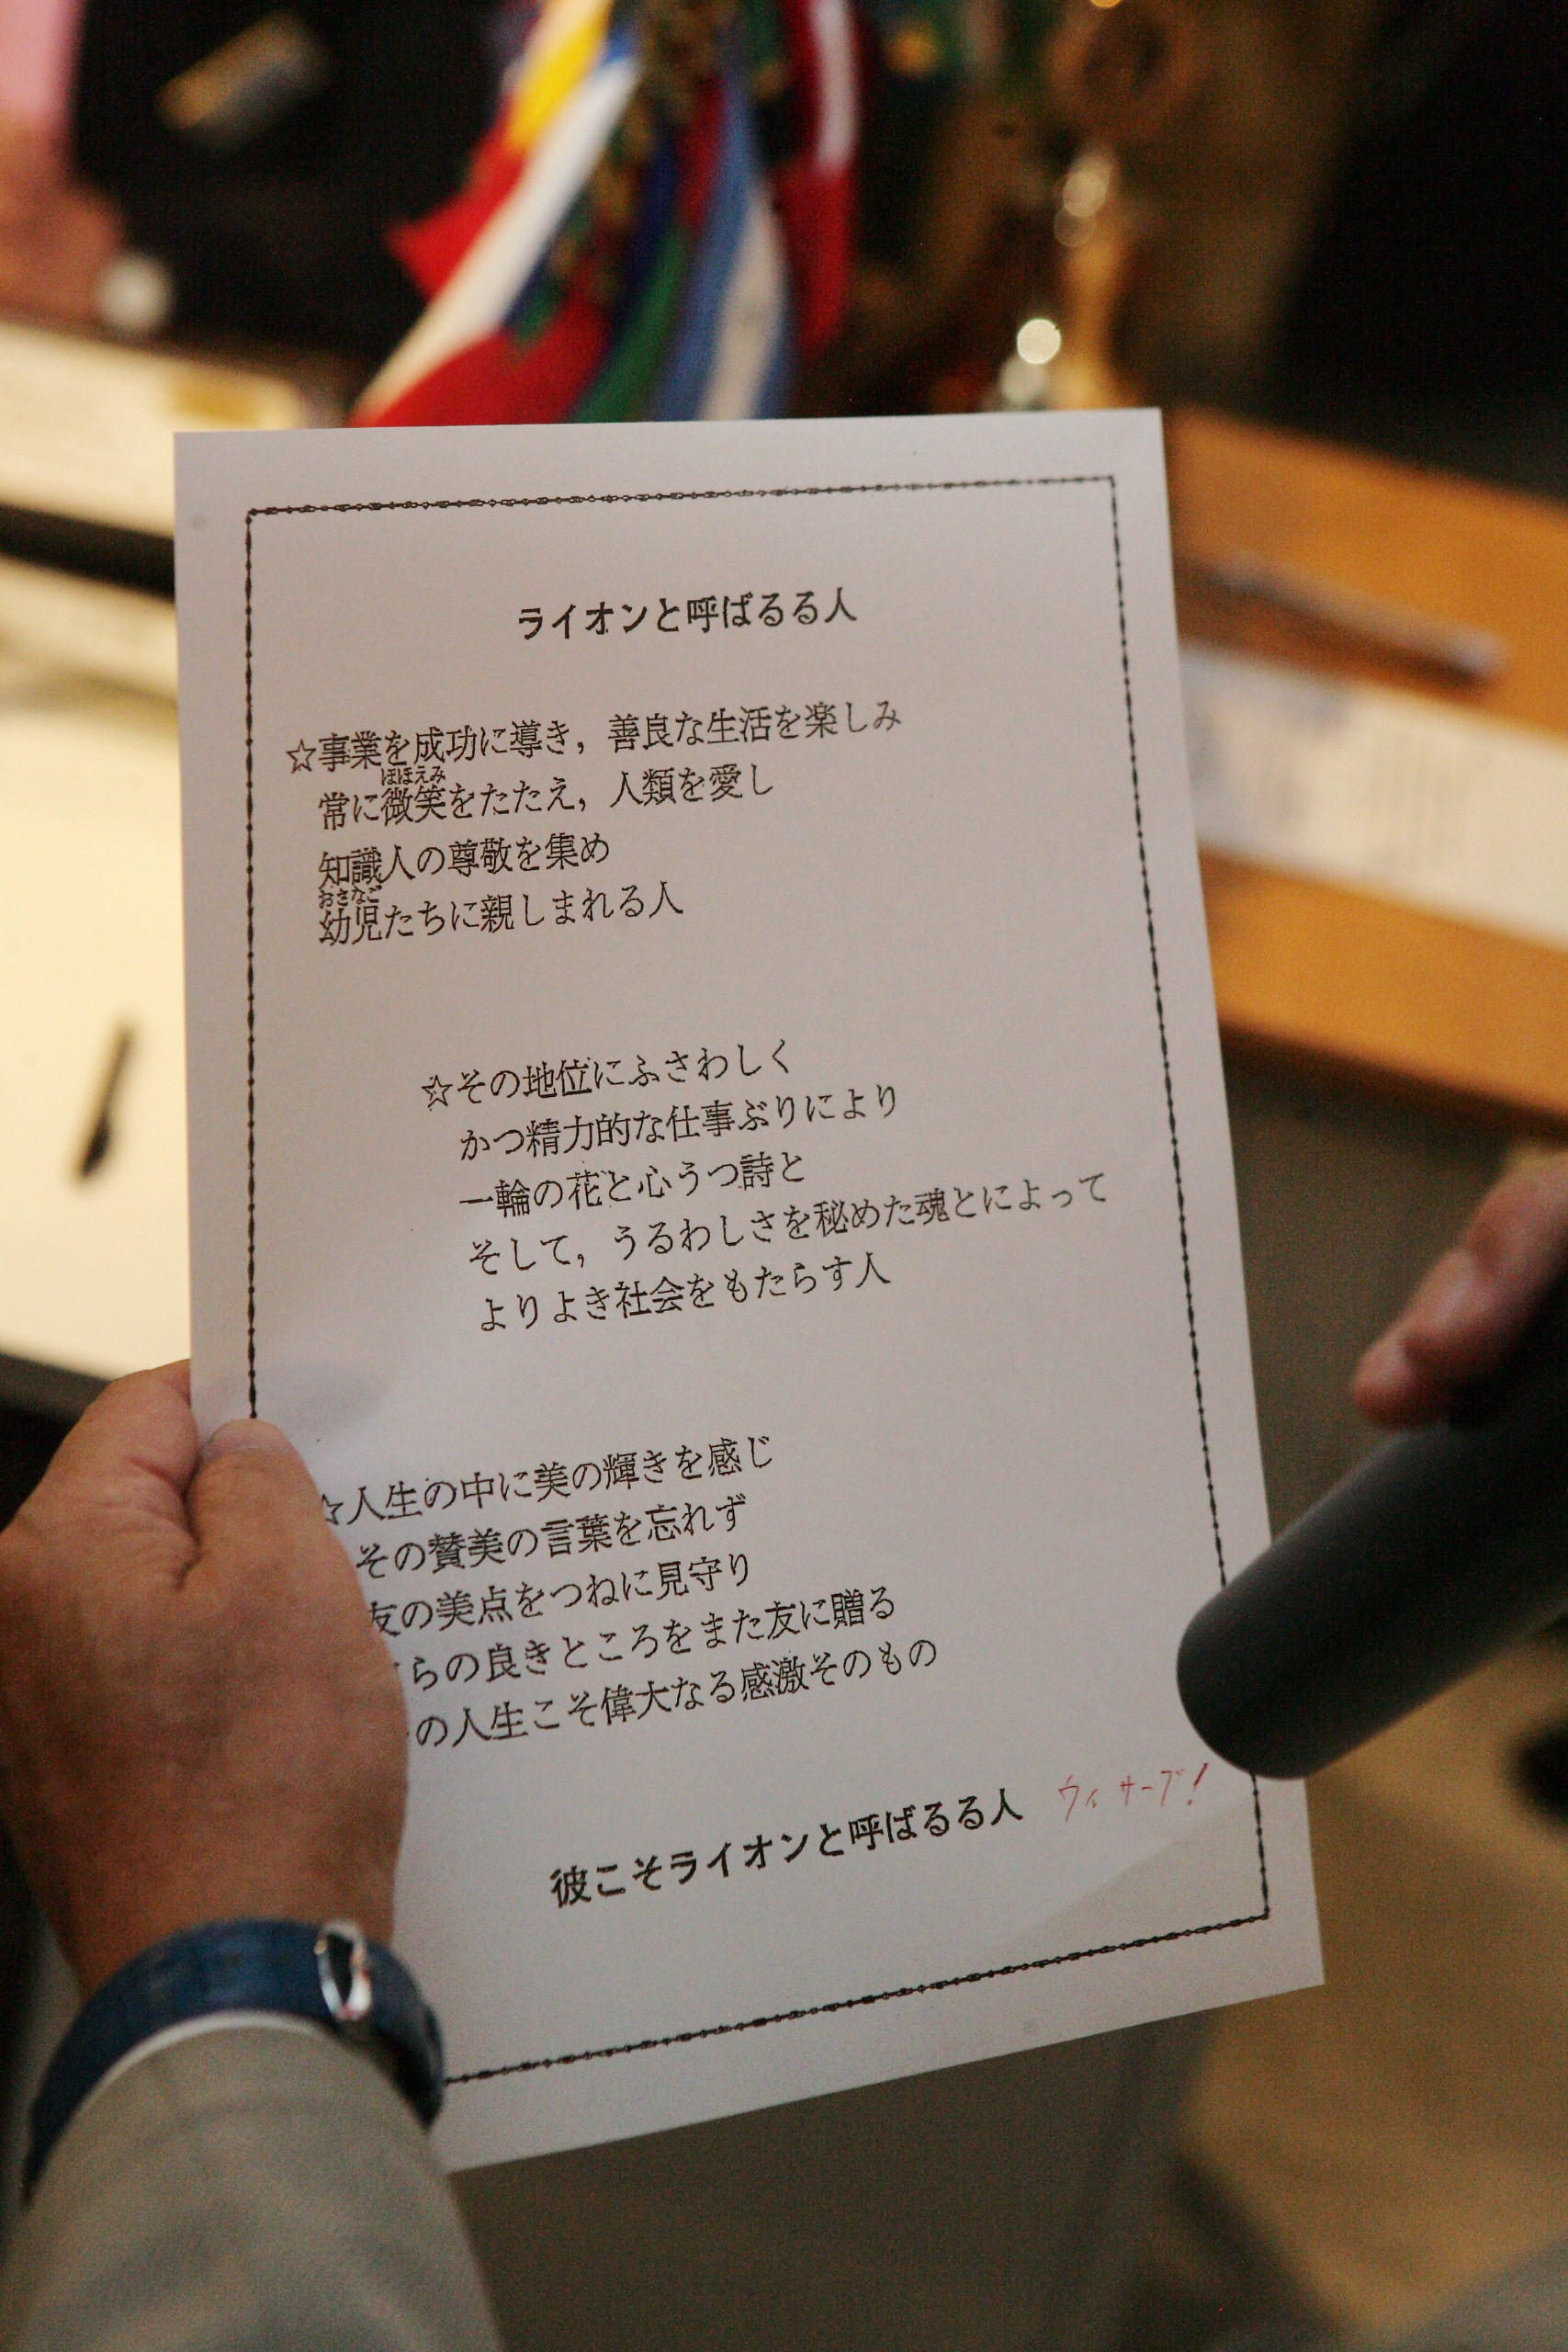 ライオンと呼ばるる人
☆事業を成功に導き，善良な生活を楽しみ
ほほえみ
常に微笑をたたえ，人類を愛し
知識人の尊敬を集め
おさなご
幼児たちに親しまれる人
☆その地位にふさわしく
かつ精力的な仕事ぶりにより
一輪の花と心うつ詩と
そして，うるわしさを秘めた魂とによって
よりよき社会をもたらす人
☆人生の中に美の輝きを感じ
その賛美の言葉を忘れず
友の美点をつねに見守り
らの良きところをまた友に贈る
の人生こそ偉大なる感激そのもの
彼こそライオンと呼ばるる人
ウィ サーブ！